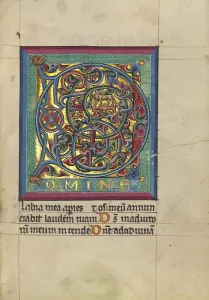 OMINE
labia mea apies ⁊ os meū annun
ciabit laudem tuam Ds̄ in adiuto
riū meum intende Dn̄e ad adiuuā